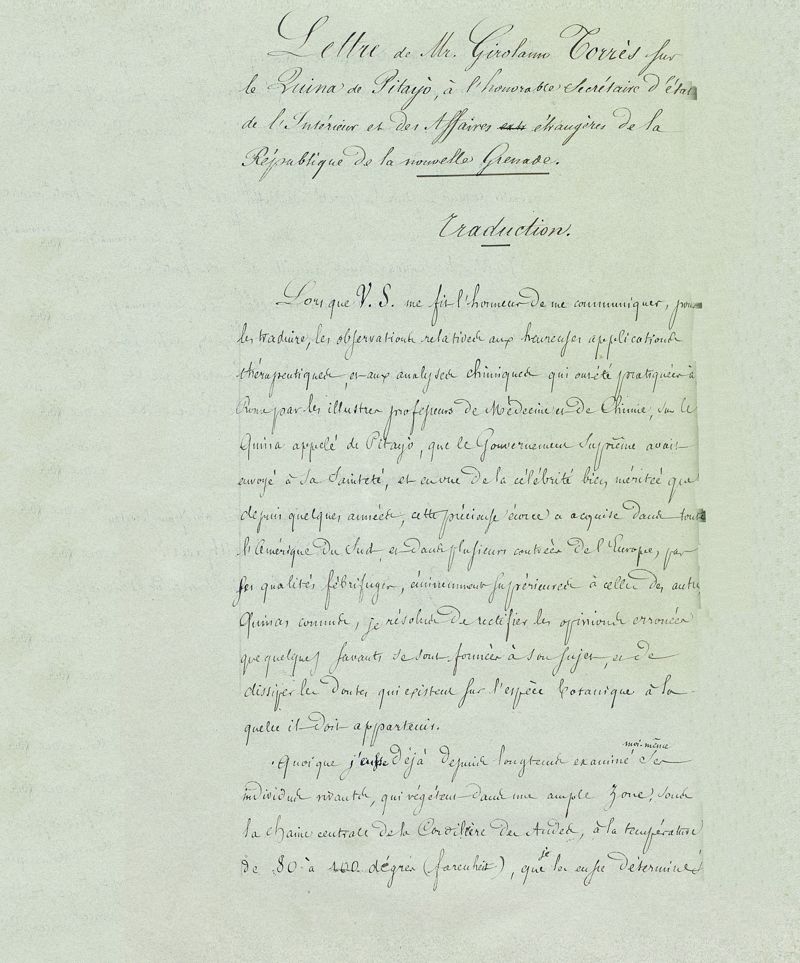 Lettre de Mr. Girolamo Torrès sur
le Quina de Pitayò, à l'honorable Secrétaire d'état
de l'Intérieur et des Affaires étrangères de la
République de la nouvelle Grenade.
Traduction.
Lors que V. S. me fit l'honneur de me communiquer, pour
les traduire, les observations relatives aux heureuses applications
thérapeutiques, et aux analyses chimiques qui ont été pratiquées à
Rome par les illustres professeurs de Médecine et de Chimie, sur le
Quina appelé de Pitayò, que le Gouvernement Suprême avait
envoyé à Sa Sainteté, et en vue de la célébrité bien méritée que
depuis quelques années, cette précieuse écorce a acquise dans toute
l'Amérique du Sud, et dans plusieurs contrées de l'Europe, par
ses qualités fébrifuges, éminemment supérieures à celles des autres
Quinas connus, je résolus de rectifier les opinions erronées
que quelques savants se sont formées à son sujet, et de
dissiper les doutes qui existent sur l'espèce botanique à la-
quelle il doit appartenir.
Quoique j'eusse déjà depuis longtems examiné moi-même ses
individus vivants, qui végètent dans une ample zone, sous
la chaîne centrale de la Cordilière des Andes, à la température
de 80 à 100 dégrés (farenheit), que je les eusse déterminés